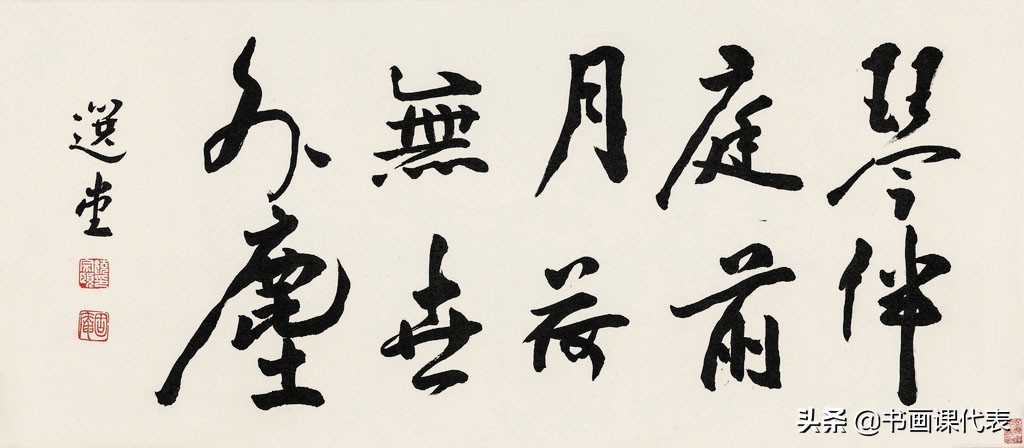 琴伴
庭前
月
無世
外塵
選堂
头条 @书画课代表